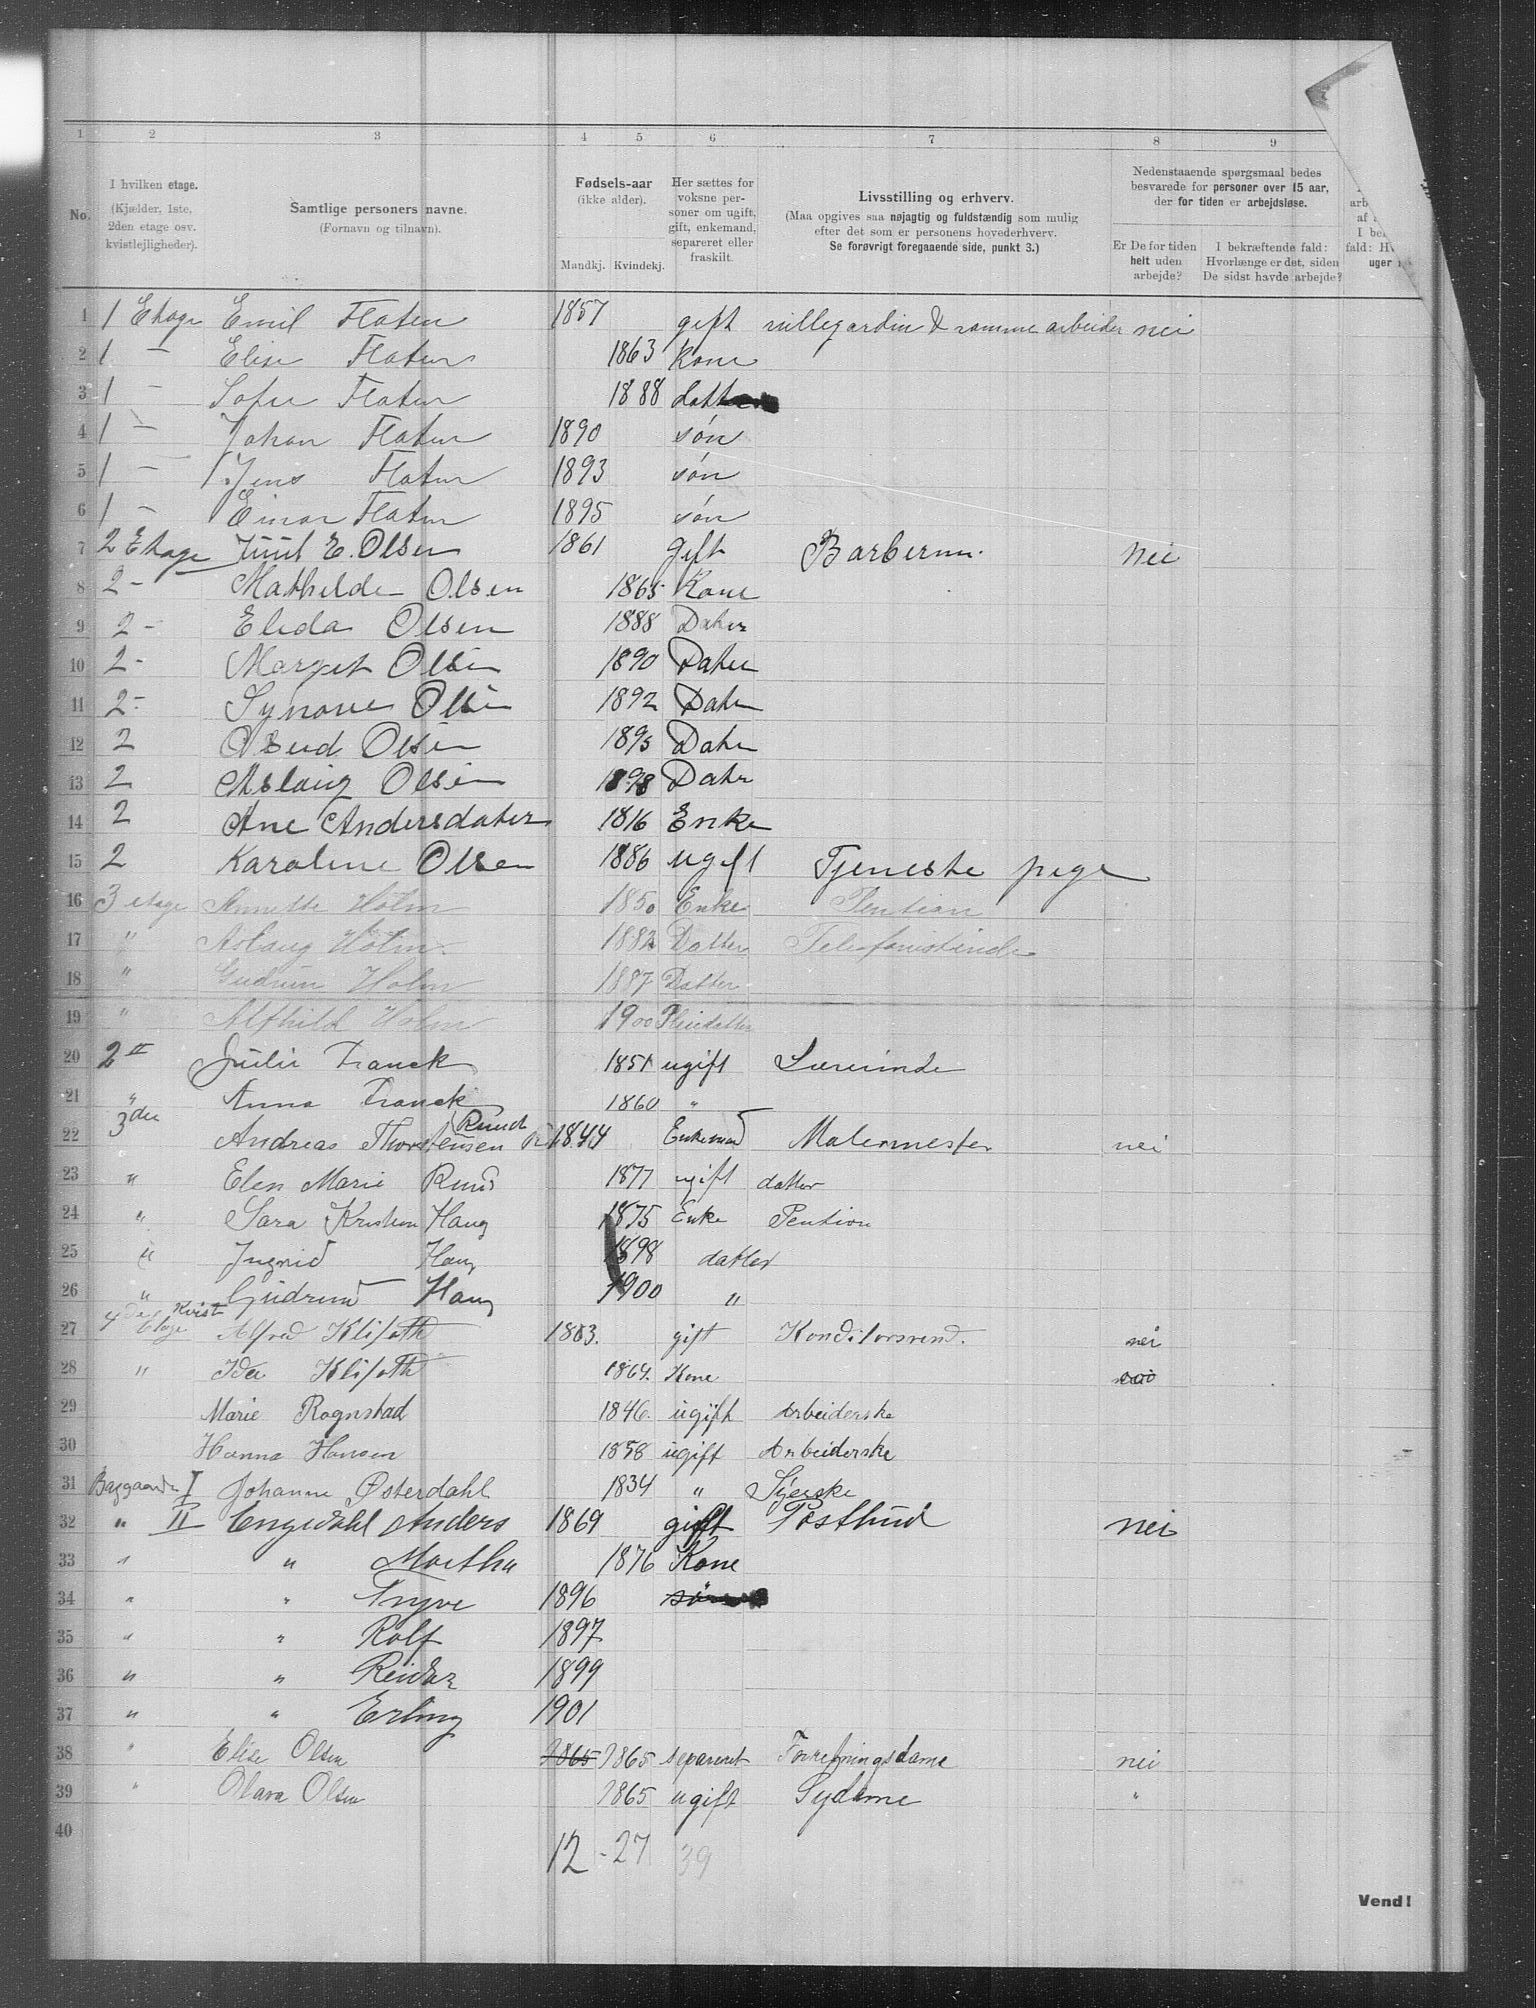 1 2 3 4 5 6 7 8 9
No.
I hvilken etage. (Kjælder, 1ste, 2den etage osv. kvistlejligheder).
Samtlige personers navne. (Fornavn og tilnavn).
Fødsels-aar (ikke alder). Mandkj. Kvindekj.
Her sættes for voksne personer om ugift, gift, enkemand, separeret eller fraskilt.
Livsstilling og erhverv. (Maa opgives saa nøjagtig og fuldstændig som mulig efter det som er personens hovederhverv. Se forøvrigt foregaaende side, punkt 3.)
Nedenstaaende spørgsmaal bedes besvarede for personer over 15 aar, der for tiden er arbejdsløse.
Er De for tiden helt uden arbejde?
I bekræftende fald: Hvorlænge er det, siden De sidst havde arbejde?
1 1 Etage Emil Flaten 1857 gift rullegardin & ramme arbeider nei
2 1 – Elise Flaten 1863 Kone
3 1 – Sofie Flaten 1888 datter
4 1 – Johan Flaten 1890 søn
5 1 – Jens Flaten 1893 søn
6 1 – Einar Flaten 1895 søn
7 2 Etage Juul E. Olsen 1861 gift Barberm. Nei
8 2 – Mathilde Olsen 1865 Kone
9 2 – Elida Olsen 1888 Dater
10 2 – Margit Olsen 1890 Dater
11 2 – Synove Olsen 1892 Dater
12 2 Olsen 1895 Dater
13 2 Aslaug Olsen 1898 Dater
14 2 Ane Andersdater 1816 Enke
15 2 Karoline Olsen 1886 ugift Tjeneste pige
16 3 etage Annette Holm 1850 Enke Pention
17 " Aslaug Holm. 1882 Datter Telefonistinde
18 " Gudrun Holm 1887 Datter
19 " Alfhild Holm 1900 Pleiedatter
20 2 Julie Franck 1851 ugift Lærerinde
21 " Anna Franck 1860 "
22 3die Andreas Thorstensen Ruud 1844 Enkemand Malermester nei
23 " Elen Marie Ruud 1877 ugift datter
24 " Sara Kristien Haug 1875 Enke Pention
25 " Ingrid Haug 1898 datter
26 " Gudrund Haug 1900 "
27 4de Etage Kvist Alfred Klifoth 1863. gift Konditorsvend. nei
28 " Ida Klifoth 1864. Kone
29 Marie Rognstad 1846. ugift Arbeiderske
30 Hanna Hansen 1858 ugift Arbeiderske
31 Baggaarden I Johanne Østerdahl 1834 " Syerske
32 " II Engedahl Anders 1869 gift Postbud Nei
33 " " Martha 1876 Kone
34 " " Trygve 1896 søn
35 " " Rolf 1897
36 " " Reidar 1899
37 " " Erling 1901
38 " Elise Olsen 1865 1865 separeret Forretningsdame nei
39 " Olava Olsen 1865 ugift Sydame "
40
12 - 27 39
Vend!